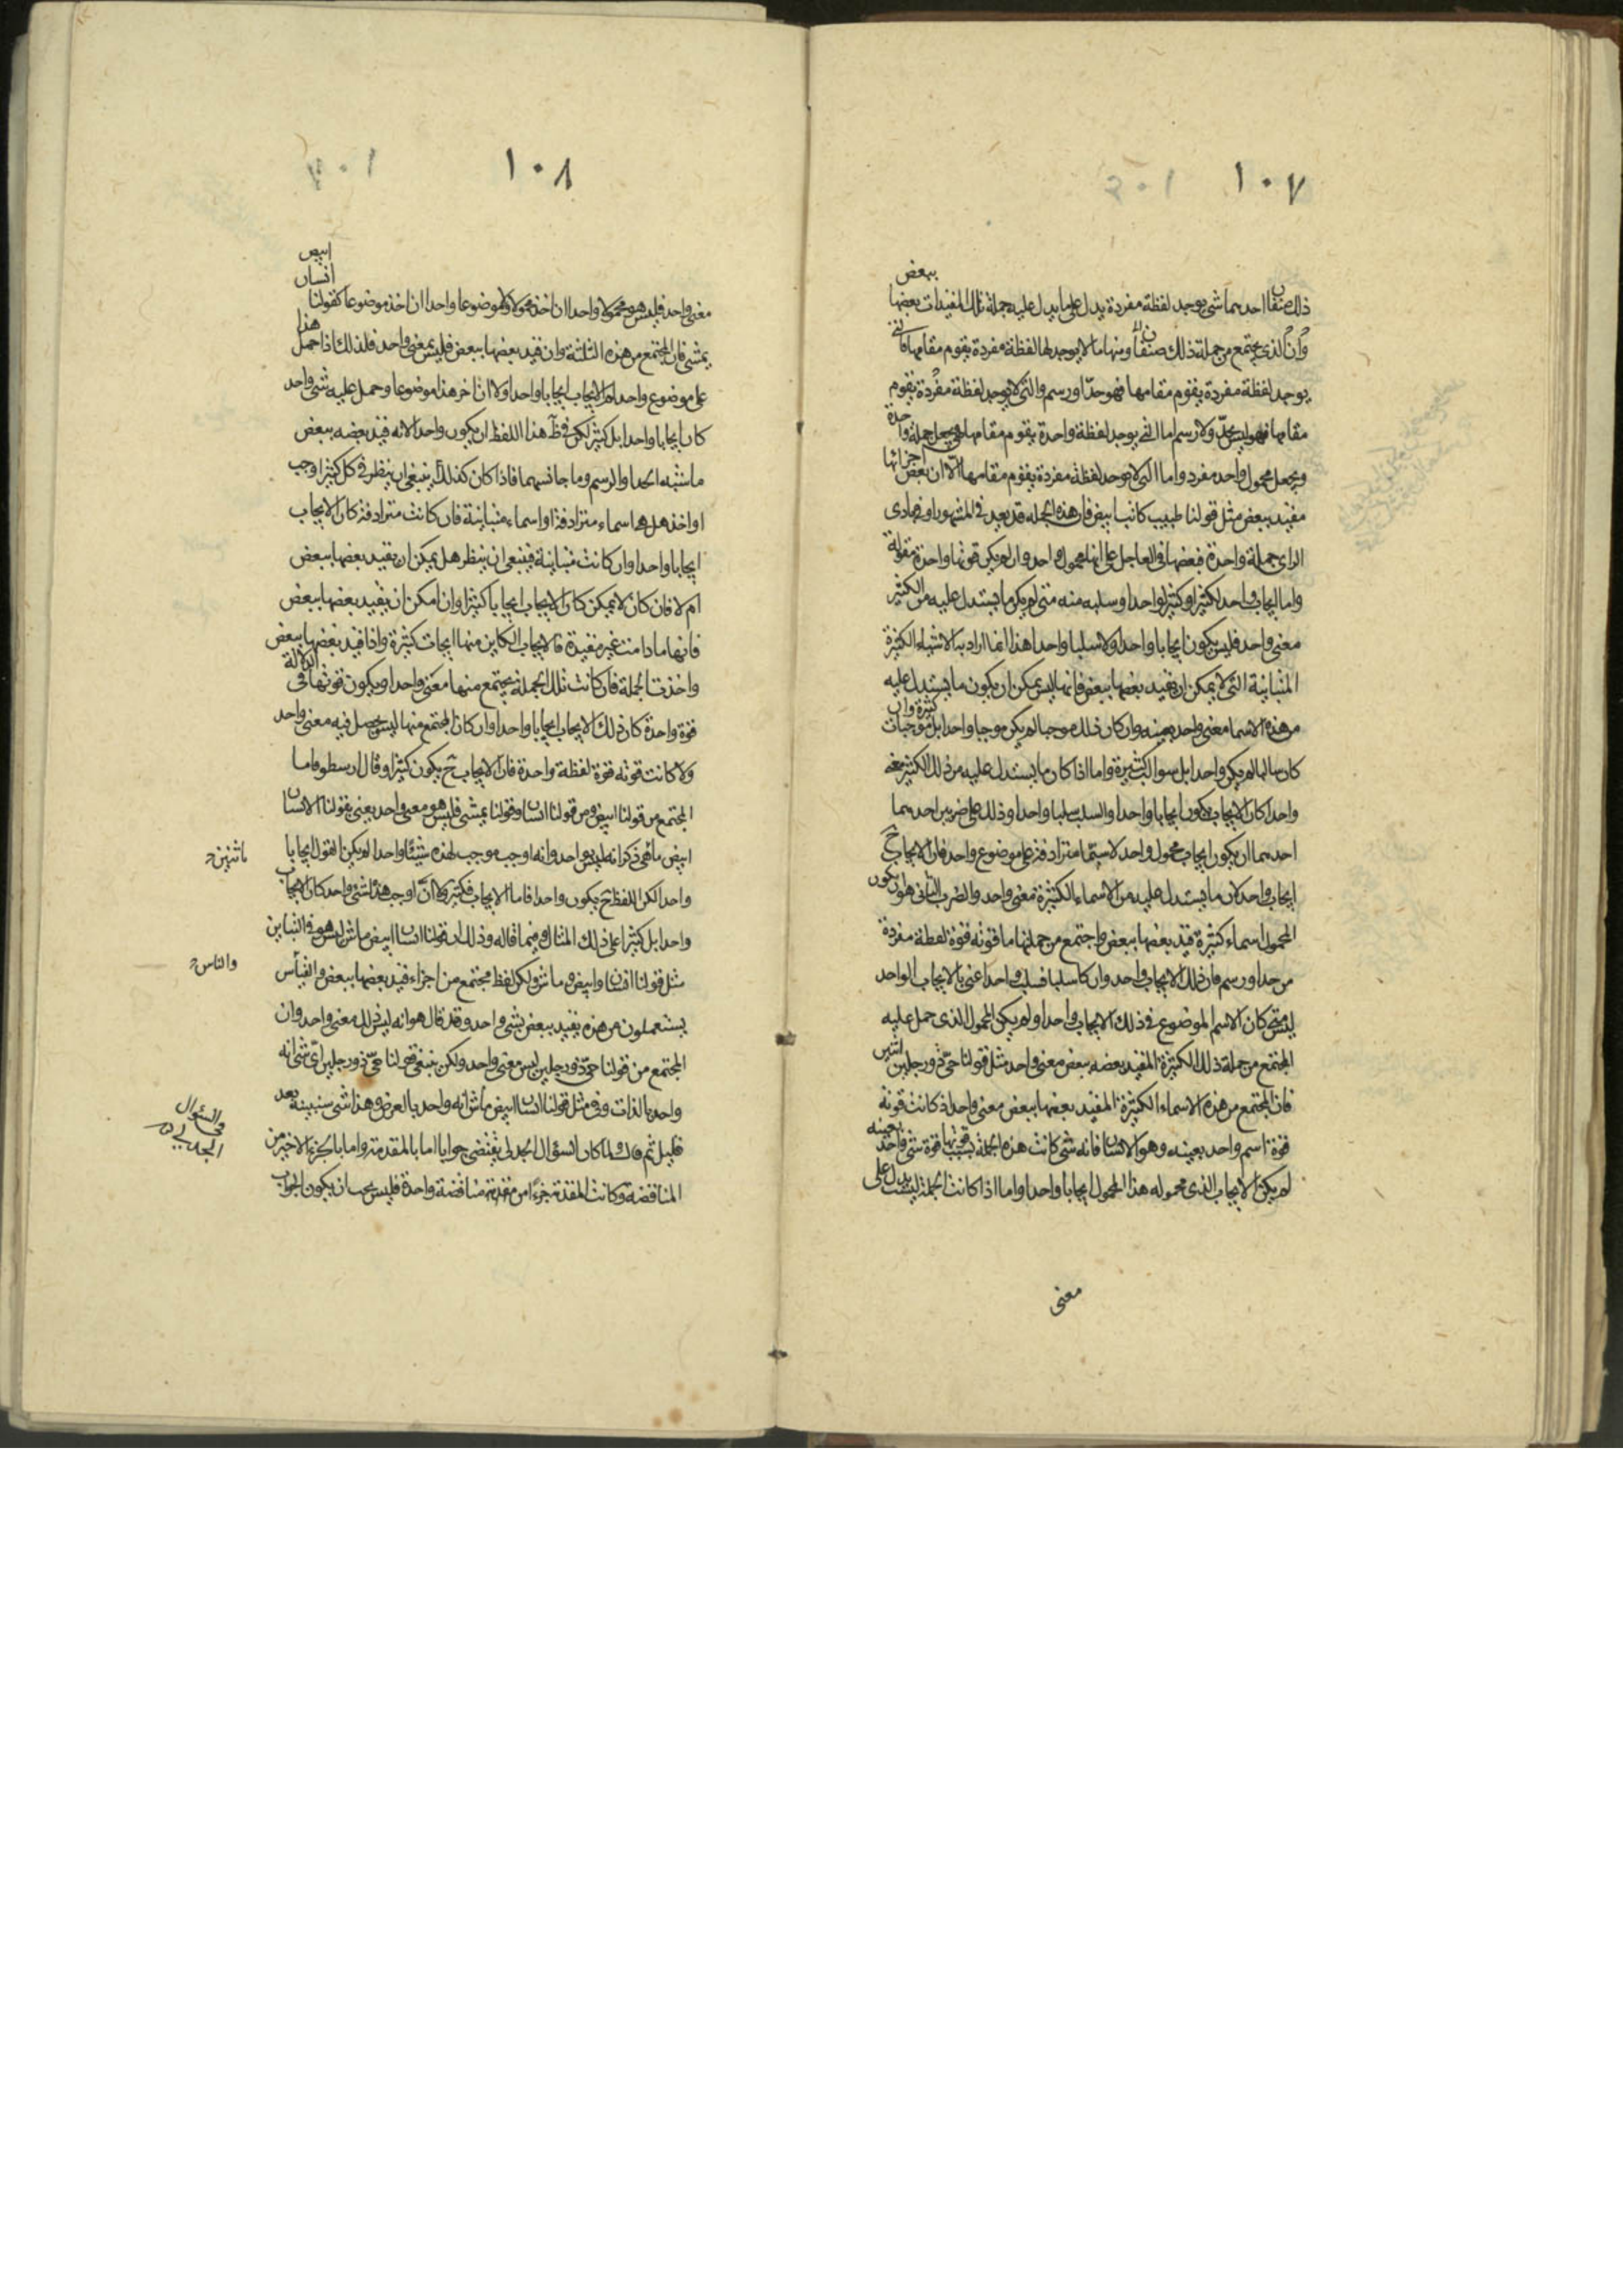 ١٠٧
ببعض
ذلك صنفان احدهما شئ يوجد لفظة مفردة يدل على ما يدل عليه جملة تلك المقيدات بعضها
وان الذى يجتمع من جملة ذلك صنفان ومنها ما لا يوجد لها لفظة مفردة يقوم مقامها فالتى
يوجد لفظة مفردة يقوم مقامها فهو حد او رسم والتى لا يوجد لفظة مفردة يقوم
مقامها فهو ليس بحد ولا رسم اما التى يوجد لفظة واحدة يقوم مقامها فيجعل جملة واحدة
ويجعل محمول واحد مفرد واما التى لا توجد لفظة مفردة يقوم مقامها الا ان بعض اجزائها
مقيد ببعض مثل قولنا طبيب كاتب ابيض فان هذه الجملة قد يعد فى المشهور او فى بادى
الراى جملة واحدة فبعضها فى العاجل على انها محمول واحد وان لم يكن قوتها واحدة مقولة
واما ايجاب واحد لكثير او كثير لواحد او سلبه منه متى لم يكن ما يستدل عليه من الكثير
معنى واحد فليس يكون ايجابا واحدا ولا سلبا واحدا هذا انما اراد به الاشياء الكثيرة
المتباينة التى لا يمكن ان يقيد بعضها ببعض فانها ليس يمكن ان يكون ما يستدل عليه
من هذه الاسما معنى واحد بعينه وان كان ذلك موجبا لم يكن موجبا واحدا بل موجبات كثيرة وان
كان سالبا لم يكن واحدا بل سوالب كثيرة واما اذا كان ما يستدل عليه من ذلك الكثير معنى
واحدا كان الايجاب يكون ايجابا واحدا والسلب سلبا واحدا وذلك على ضربين احدهما
احدهما ان يكون ايجاب محمول واحد لاسماء مترادفة على موضوع واحد فان الايجاب ح
ايجاب واحد لان ما يستدل عليه من الاسماء الكثيرة معنى واحد والضرب الثانى هو ان يكون
المحمول اسماء كثيرة قيد بعضها ببعض واجتمع من جملتها ما قوته قوة لفظة مفردة
من حد او رسم فان ذلك الايجاب واحد وان كان سلبا فسلب واحد اعنى بالايجاب الواحد
ليس متى كان الاسم الموضوع فى ذلك الايجاب واحدا ولم يكن المحمول الذى حمل عليه
المجتمع من جملة ذلك الكثيرة المقيد بعضه ببعض معنى واحد مثل قولنا حى ذو رجلين انيس
فان المجتمع من هذه الاسماء الكثيرة المقيد بعضها ببعض معنى واحد اذ كانت قوته
قوة اسم واحد بعينه وهو الانسان فانه شئ كانت هذه الجملة ليست قوتها قوة شئ واحد بعينه
لم يكن الايجاب الذى محموله هذا المحمول ايجابا واحدا واما اذا كانت الجملة ليست يدل على
معنى
١٠٨
ابيض
انسان
معنى واحد فليس هو محمولا واحدا ان اخذ محمولا ولا موضوعا واحدا ان اخذ موضوعا كقولنا
يمشى فان المجتمع من هذه الثلثة وان قيد بعضها ببعض فليس بمعنى واحد فلذلك اذا حمل هذا
على موضوع واحد لم الايجاب ايجابا واحدا ولا ان اخذ هذا موضوعا وحمل عليه شئ واحد
كان ايجابا واحدا بل كثير لكن قوة هذا اللفظ ان يكون واحدا لانه قيد بعضه ببعض
ما شبه الحد والرسم وما جانسهما فاذا كان كذلك ينبغى ان ينظر فى كل كثير اوجب
او اخذ هل هما اسماء مترادفة او اسماء متباينة فان كانت مترادفة كان الايجاب
ايجابا واحدا وان كانت متباينة فينبغى ان ينظر هل يمكن ان يقيد بعضها ببعض
ام لا فان كان لا يمكن كان الايجاب ايجابا كثيرا وان امكن ان يقيد بعضها ببعض
فانها ما دامت غير مقيدة فالايجاب الكاين منها ايجابات كثيرة واذا قيد بعضها ببعض
واخذت الجملة فان كانت تلك الجملة يجتمع منها معنى واحدا ويكون قوتها فى الدلالة
قوة واحدة كان ذلك الايجاب ايجابا واحدا وان كان المجتمع منها ليس يحصل فيه معنى واحد
ولا كانت قوته قوة لفظة واحدة فان الايجاب ح يكون كثيرا وقال ارسطو فاما
المجتمع من قولنا ابيض ومن قولنا انسان وقولنا يمشى فليس هو معنى واحد يعنى بقولنا الانسان
ابيض ماشى ذكر انه ليس بواحد وانه اوجب موجب لهذه شيئا واحدا لم يكن القول ايجابا
واحدا لكن اللفظ ح يكون واحدا فاما الايجاب فكثيرة ولا ان اوجب هذا لشئ واحد كان الايجاب
واحدا بل كثيرا على ذلك المثال وفيما قاله وذلك ان قولنا انسان ابيض ماش ليس هو فى التباين
مثل قولنا انسان وابيض وماش ولكن لفظ مجتمع من اجزاء قيد بعضها ببعض والقياس
يستعملون من هذه يقيد ببعض بشئ واحد وقد قال هو انه ليس ذلك معنى واحد وان
المجتمع من قولنا حى ذو رجلين ليس معنى واحد ولكن ينبغى قولنا حى ذو رجلين اى شئ انه
واحد بالذات وفى مثل قولنا انسان ابيض ماش انه واحد بالعرض وهذا شئ سنبينه بعد
قليل ثم قال ولما كان السؤال الجدلى يقتضى جوابا اما بالمقدمة واما بالجزء الاخير من
المناقضة وكانت المقدمة جزءا من مقدمة مناقضة واحدة فليس يجب ان يكون الجواب
والناس
فى السؤال
الجدلى